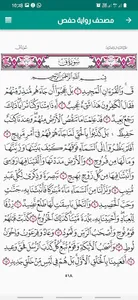 10:45
مصحف رواية حفص
سُورَةُ قٓ
بِسْمِ ٱللَّهِ ٱلرَّحْمَٰنِ ٱلرَّحِيمِ
قٓ وَٱلْقُرْءَانِ ٱلْمَجِيدِ ١ بَلْ عَجِبُوٓا۟ أَن جَآءَهُم مُّنذِرٌ مِّنْهُمْ
فَقَالَ ٱلْكَٰفِرُونَ هَٰذَا شَىْءٌ عَجِيبٌ ٢ أَءِذَا مِتْنَا وَكُنَّا تُرَابًا ذَٰلِكَ
رَجْعٌۢ بَعِيدٌ ٣ قَدْ عَلِمْنَا مَا تَنقُصُ ٱلْأَرْضُ مِنْهُمْ وَعِندَنَا كِتَٰبٌ
حَفِيظٌۢ ٤ بَلْ كَذَّبُوا۟ بِٱلْحَقِّ لَمَّا جَآءَهُمْ فَهُمْ فِىٓ أَمْرٍ مَّرِيجٍ ٥
أَفَلَمْ يَنظُرُوٓا۟ إِلَى ٱلسَّمَآءِ فَوْقَهُمْ كَيْفَ بَنَيْنَٰهَا وَزَيَّنَّٰهَا
وَمَا لَهَا مِن فُرُوجٍ ٦ وَٱلْأَرْضَ مَدَدْنَٰهَا وَأَلْقَيْنَا فِيهَا رَوَٰسِىَ
وَأَنۢبَتْنَا فِيهَا مِن كُلِّ زَوْجٍۭ بَهِيجٍ ٧ تَبْصِرَةً وَذِكْرَىٰ لِكُلِّ عَبْدٍ
مُّنِيبٍ ٨ وَنَزَّلْنَا مِنَ ٱلسَّمَآءِ مَآءً مُّبَٰرَكًا فَأَنۢبَتْنَا بِهِۦ جَنَّٰتٍ وَحَبَّ
ٱلْحَصِيدِ ٩ وَٱلنَّخْلَ بَاسِقَٰتٍ لَّهَا طَلْعٌ نَّضِيدٌ ١٠ رِّزْقًا
لِّلْعِبَادِ وَأَحْيَيْنَا بِهِۦ بَلْدَةً مَّيْتًا كَذَٰلِكَ ٱلْخُرُوجُ ١١ كَذَّبَتْ
قَبْلَهُمْ قَوْمُ نُوحٍ وَأَصْحَٰبُ ٱلرَّسِّ وَثَمُودُ ١٢ وَعَادٌ وَفِرْعَوْنُ وَإِخْوَٰنُ
لُوطٍ ١٣ وَأَصْحَٰبُ ٱلْأَيْكَةِ وَقَوْمُ تُبَّعٍ كُلٌّ كَذَّبَ ٱلرُّسُلَ فَحَقَّ وَعِيدِ
١٤ أَفَعَيِينَا بِٱلْخَلْقِ ٱلْأَوَّلِ بَلْ هُمْ فِى لَبْسٍ مِّنْ خَلْقٍ جَدِيدٍ ١٥
٥١٨